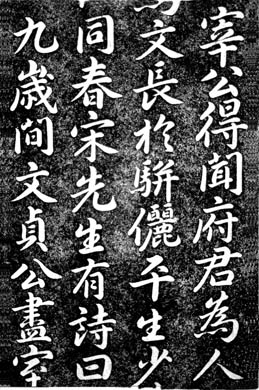 宰公得闻府君為人
文長於駢儷平生少
同春宋先生有詩曰
九歲間文貞公盡室